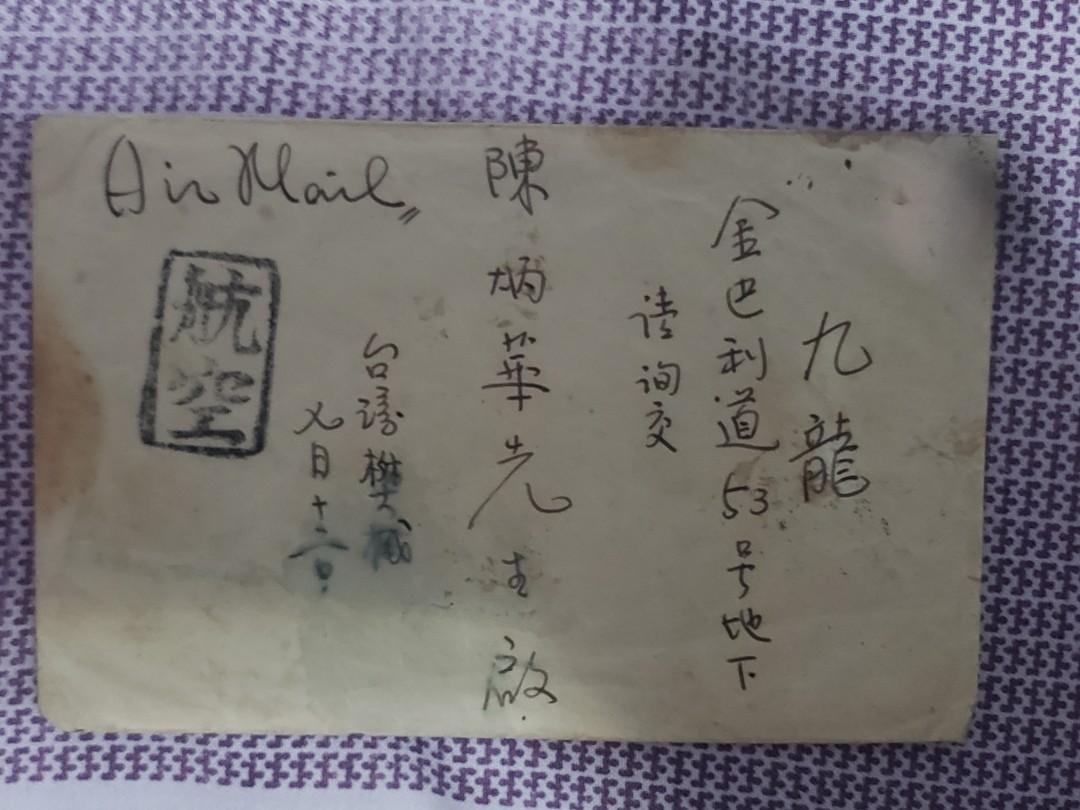 九龍
金巴利道53号地下
请询交
陳炳華先生啟
台湾樊緘
七月十六日
Air Mail
航空